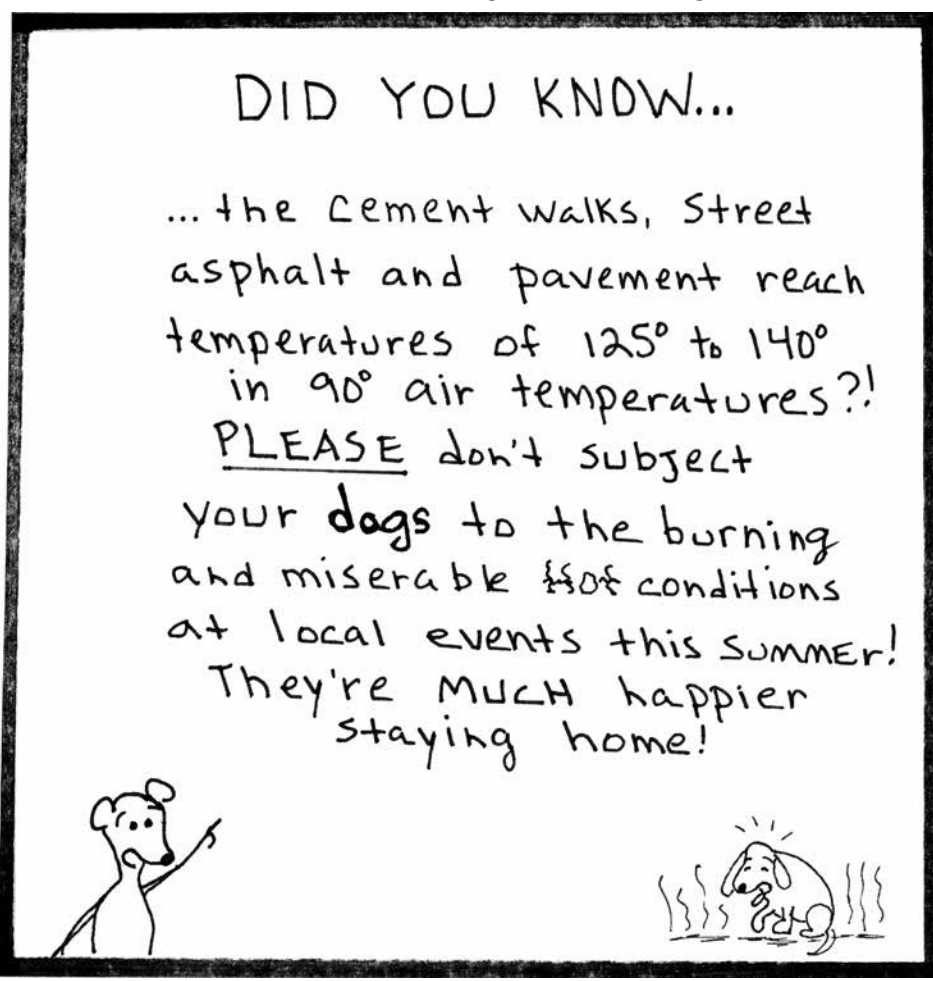 DID YOU KNOW...
...the cement walks, street
asphalt and pavement reach
temperatures of 125° to 140°
in 90° air temperatures?!
PLEASE don't subject
your dogs to the burning
and miserable conditions
at local events this summer!
They're MUCH happier
staying home!